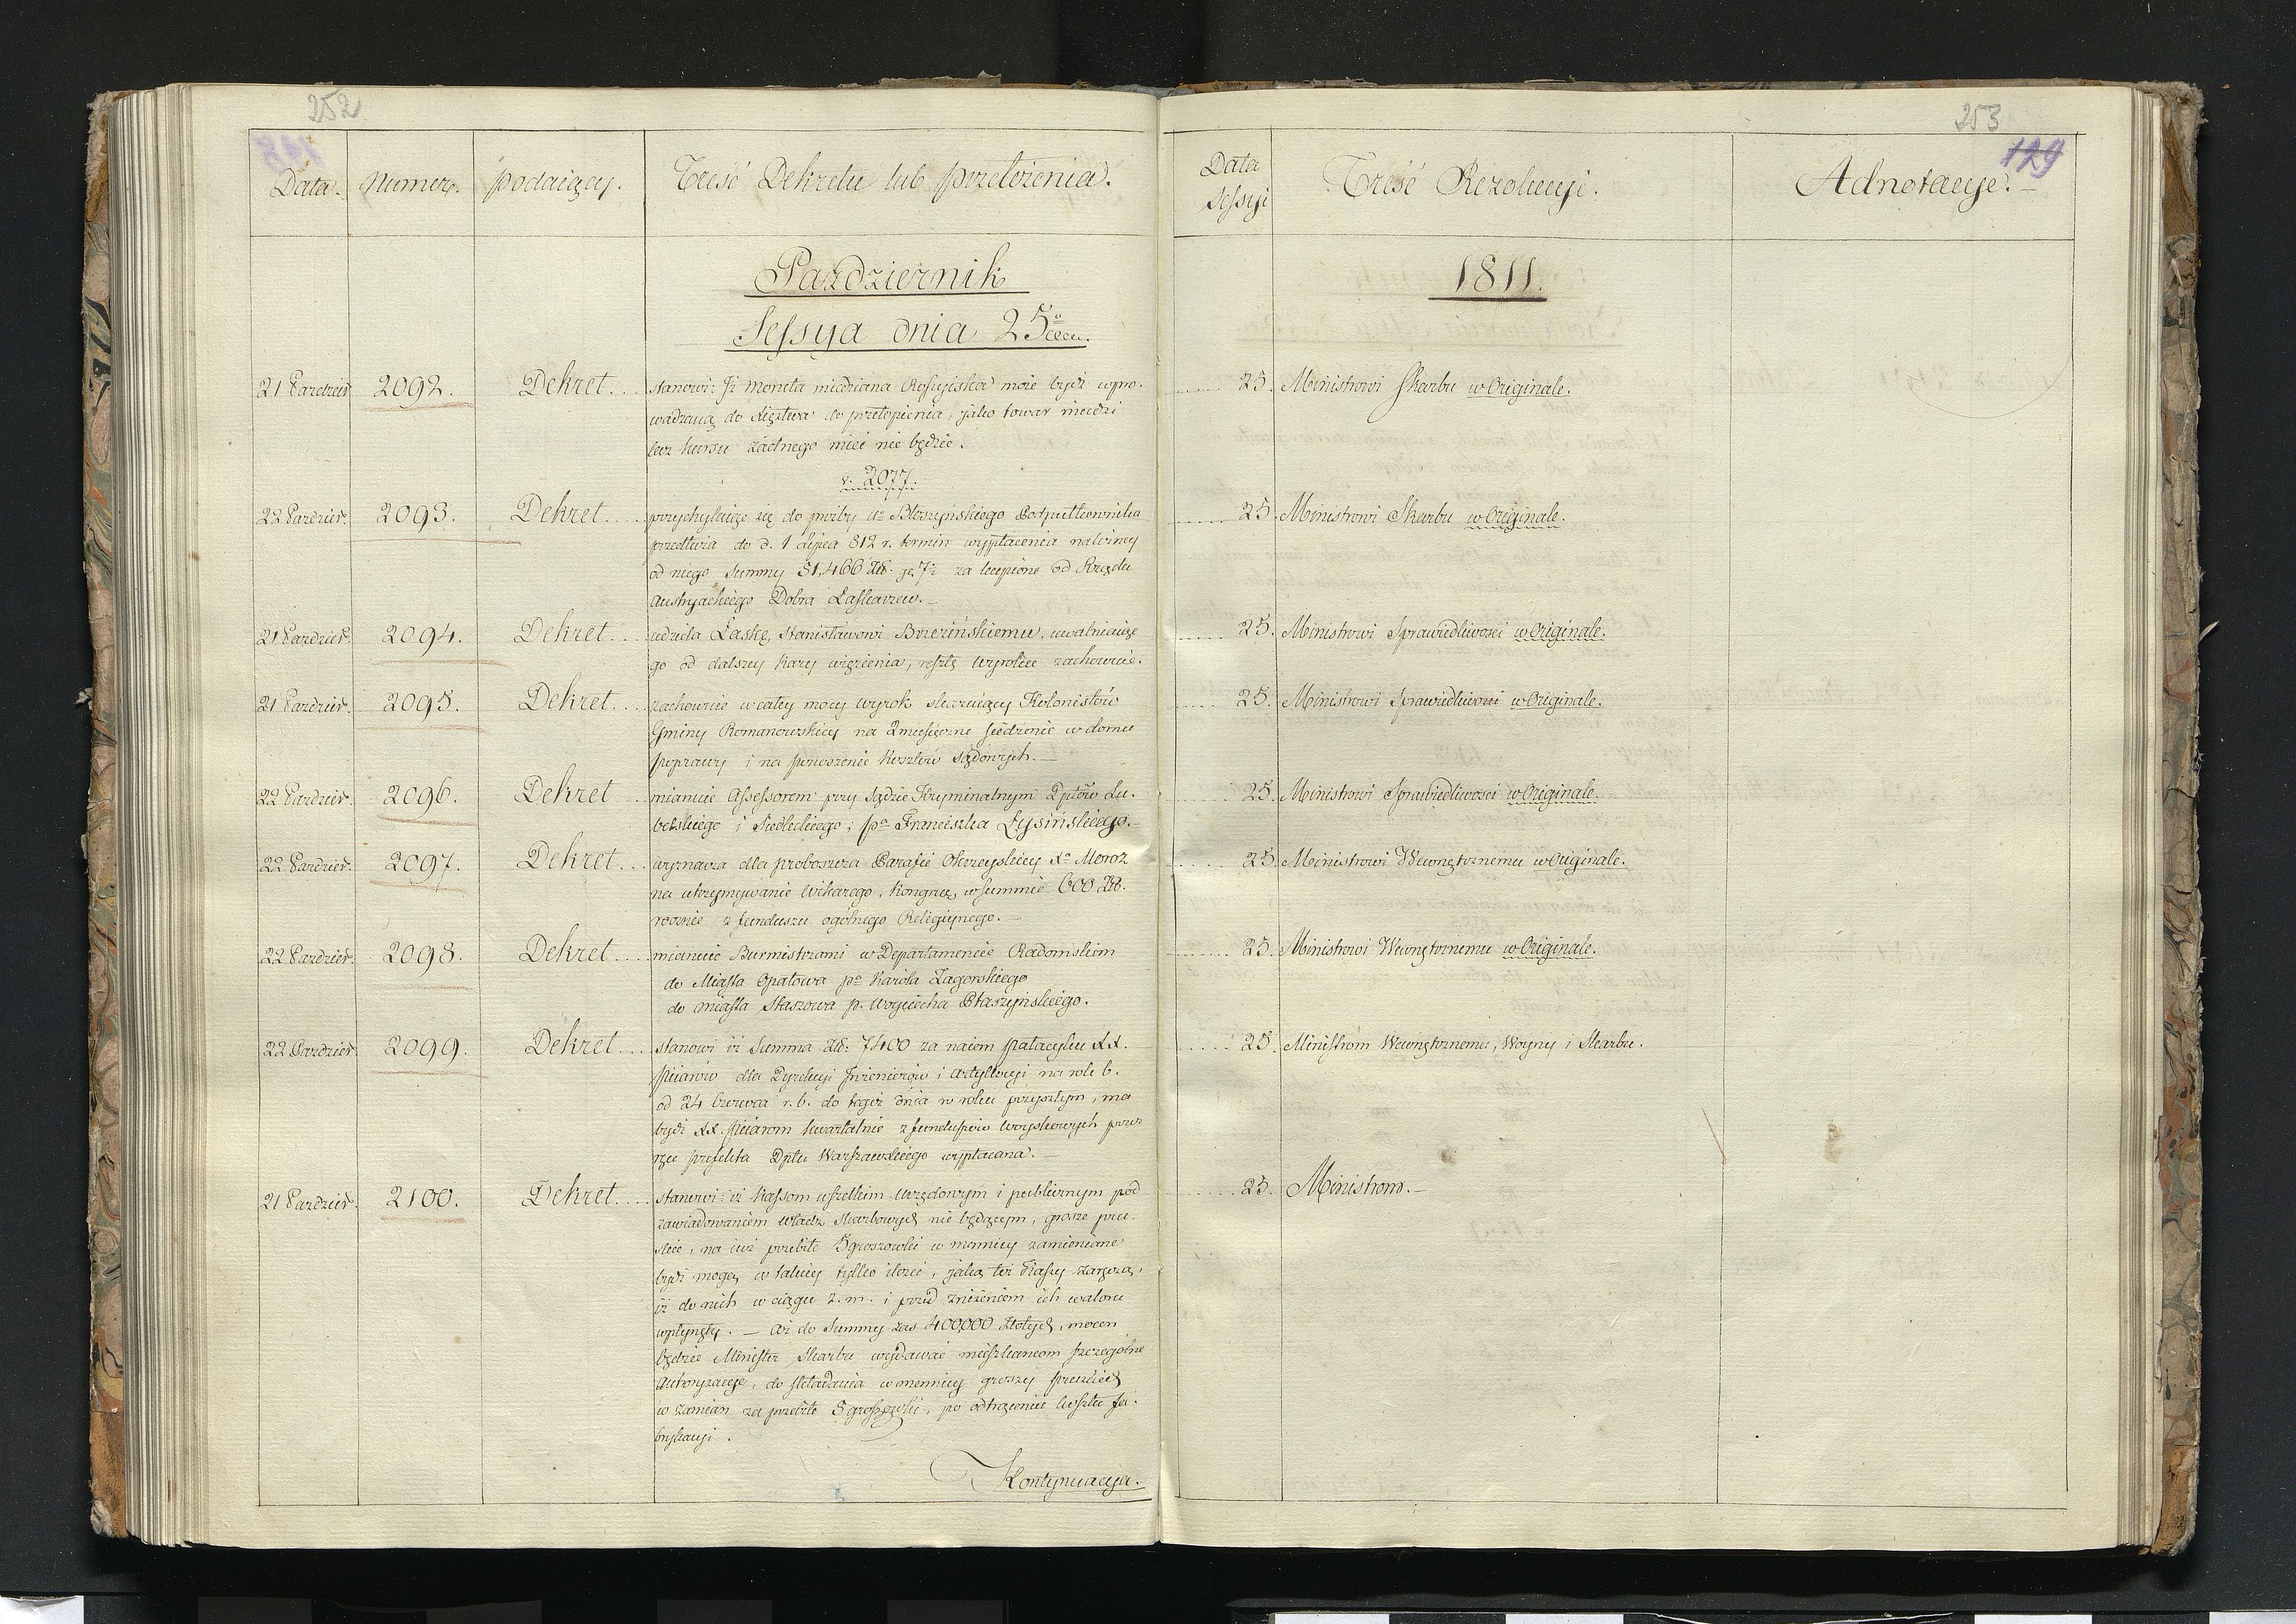 252
Data. Numer. podaiący. Treść Dekretu lub przełożenia.
Pazdziernik
Sessya dnia 25º
21 Pazdzier. 2092. Dekret.... stanowi: Iż Moneta miedziana Rossyiska może bydź wpro-
wadzaną do Xięztwa do przetopienia, jako towar miedzi
lecz kursu żadnego mieć nie będzie.
v. 2077.
22 Pazdzier. 2093. Dekret.... przychylaiąc się do proźby Błeszyńskiego Podpułkownika
przedłuża do d. 1 Lipca 812 r. termin wypłacenia należney
od niego Summy 51,466 Zł. gr. 7½ za kupione od Rządu
Austryackiego Dobra Łaskarzew.—
21 Pazdzier. 2094. Dekret... udziela Łaskę, Stanisławowi Brzezińskiemu, uwalniaiąc
go od dalszey kary więzienia, resztę wyroku zachowuie.
21 Pazdzier. 2095. Dekret.... zachowuie w całey mocy wyrok skazuiący Kolonistów
Gminy Romanowskiey na 2 miesięczne siedzenie w domu
poprawy i na ponoszenie kosztów sądowych.—
22 Pazdzier. 2096. Dekret... mianuie Assessorem przy Sądzie Kryminalnym Dptów Lu-
belskiego i Siedleckiego; pa Franciszka Łysińskiego.—
22 Pazdzier. 2097. Dekret... wyznacza dla proboszcza Parafii Okrzeyskiey Xa Moroz
na utrzymywanie wikarego, kongruę w summie 600 Zł.
rocznie z funduszu ogólnego Religiynego.—
22 Pazdzier. 2098. Dekret.... mianuie Burmistrzami w Departamencie Radomskiem
do Miasta Opatowa pa Karola Zagorskiego
do miasta Staszowa p. Woyciecha Ptaszyńskiego.
22 Pazdzier. 2099. Dekret... stanowi iż Summa Zł: 7400 za naiem pałacyku XX.
Piiarów dla Dyrekcyi Inżenierów i Artylleryi na rok b.
od 24 Czerwca r. b. do tegoż dnia w roku przyszłym, ma
bydź XX. Piiarom kwartalnie z funduszów woyskowych przez
rąu prefekta Dptu Warszawskiego wypłacana.—
21 Pazdzier. 2100. Dekret.... stanowi: iż Kassom wszelkim urzędowym i publicznym pod
zawiadowaniem władz skarbowych nie będącym, grosze pru-
skie, na iuż przebite 3 groszówki w mennicy zamieniane
bydź mogą w takiey tylko ilości, jaką też Kassy zaręczą,
iż do nich w ciągu z. m. i przed zniżeniem ich waloru
wpłynęły.— Aż do Summy zaś 400,000 Złotych, mocen
będzie Minister Skarbu wydawać mieszkańcom szczególne
Autoryzacye, do składania w mennicy groszy pruskich
w zamian za przebite 3 groszówki, po odtrąceniu kosztu fa-
brykacyi.
Kontynuacya.
253
129
Data Sessyi Treść Rezolucyi. Adnotacye.—
1811.
..... 25. Ministrowi Skarbu w Originale.
..... 25. Ministrowi Skarbu w Originale.
..... 25. Ministrowi Sprawiedliwosci w Originale.
..... 25. Ministrowi Sprawiedliwosci w Originale.
..... 25. Ministrowi Sprawiedliwosci w Originale.
..... 25. Ministrowi Wewnętrznemu w Originale.
..... 25. Ministrowi Wewnętrznemu w Originale.
..... 25. Ministrom Wewnętrznemu, Woyny i Skarbu.
..... 25. Ministrom.—